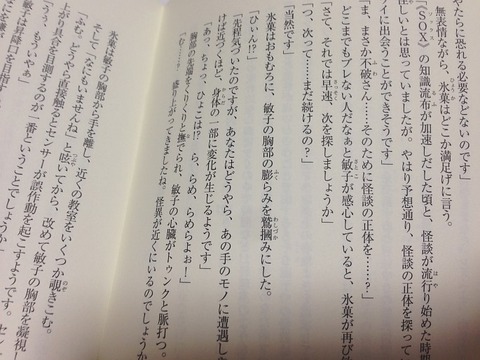 やたらに恐れる必要などないのです」
無表情ながら、氷菓はどこか満足げに言う。
《SOX》の知識流布が加速しだした頃と、怪談が流行り始めた時
怪しいとは思っていましたが。やはり予想通り、怪談の正体を探って
アに出会うことができそうです」
「ま、まさか不破さん……そのために怪談の正体を……?」
どこまでもブレない人だなぁと敏子が感心していると、氷菓が再び
「さて、それでは早速、次を探しましょうか」
「つ、次って……まだ続けるの?」
「当然です」
氷菓はおもむろに、敏子の胸部の膨らみを鷲摑みにした。
「ひぃん!?」
「先程気づいたのですが、あなたはどうやら、あの手のモノに遭遇し
けば近づくほど、身体の一部に変化が生じるようです」
「あっ、ちょっ、ひょこは!? ら、らめ、らめらよぉ!」
胸部の先端をくりくりと撫でられ、敏子の心臓がトゥンクと脈打つ。
「む……盛り上がってきましたね。怪異が近くにいるのでしょうか
氷菓は敏子の胸部から手を離し、近くの教室をいくつか覗きこむ。
そして「なにもいませんね」と呟いてから、改めて敏子の胸部を凝視し
「ふむ。どうやら直接触るとセンサーが誤作動を起こすようです。セン
上がり具合を目測するのが一番ということでしょうか」
「うぅ、もういやぁ」